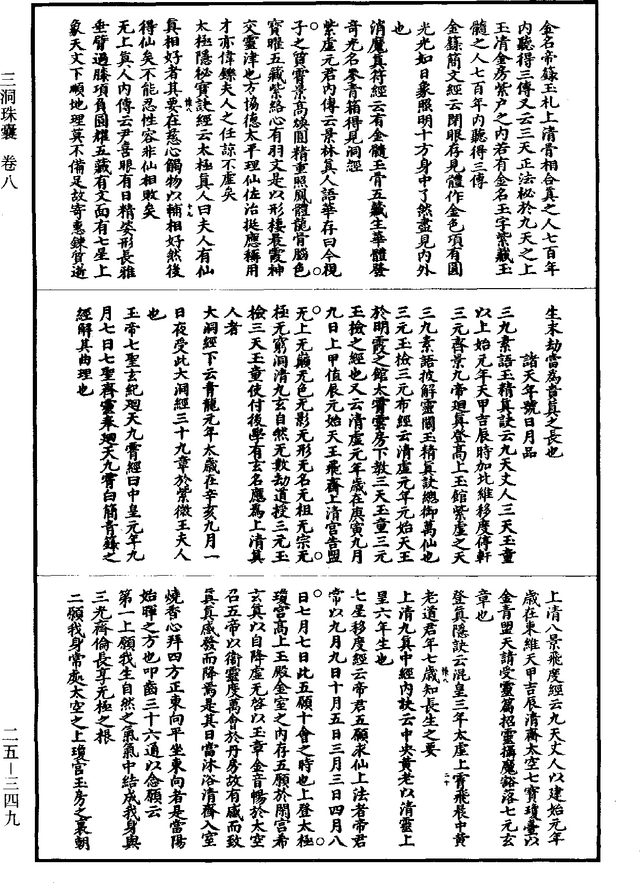 三洞珠囊 卷八
二五—三四九
金名帝錄玉札上清骨相合真之人七百年
內聽得三傳又云三天正法秘於九天之上
玉清金房紫户之內若有金名玉字紫藏玉
髓之人七百年內聽得三傳
金錄簡文經云閉眼存見體作金色項有圓
光光如日象照明十方身中了然盡見內外
也
消魔真符經云有金髓玉骨五藏生華體發
奇光名參青箱得見洞經
紫虛元君內傳云景林真人語華存曰今視
子之質霄景高煥圓精重照鳳體龍骨腦色
寶曜五藏紫絡心有羽文是以形棲晨霞神
交靈津也方協德太平理仙佐治挺應稱用
才亦偉鑠夫人之任諒不虛矣
太極隱秘寶訣經云太極真人曰夫人有仙
真相好者其要在慈心觸物以輔相好然後
得仙矣不能忍性容非仙相敗矣
无上真人內傳云尹喜眼有日精姿形長雅
垂臂過膝項負圓耀五藏有文面有七星上
象天文下順地理莫不備足故寄惠鍊質逝
生末劫當為當真之長也
諸天年號日月品
三九素語玉精真訣云九天丈人三天玉童
以上始元年天甲吉辰時加比維移度傳軒
三元啓景九帝廻真登高上玉館紫虛之天
三九素語披解靈關玉精真訣總御萬仙也
三元玉檢三元布經云清虛元年元始天王
於明霞之館太霄雲房下教三天玉童三元
玉檢之經也又云清虛元年歲在庚寅九月
九日上甲值辰元始天王飛齋上清宫告盟
无上无巔无色无影无形无名无祖无宗无
極无窮洞清九玄自然无數劫道授三元玉
檢三天玉童使付後學有玄名應爲上清真
人者
大洞經下云青龍元年太歲在辛亥九月一
日夜受此大洞經三十九章於紫微王夫人
也
玉帝七聖玄紀廻天九霄經曰中皇元年九
月七日七聖齊靈奉廻天九霄白簡青籙之
經解其曲理也
上清八景飛度經云九天丈人以建始元年
歲在東維天甲吉辰清齋太空七寶瓊臺以
金青盟天請受靈篇招靈攝魔豁落七元玄
章也
登真隱訣云混皇三年太虛上霄飛晨中黄
老道君年七歲知長生之要
上清九真中經內訣云中央黄老以清靈上
皇六年生也
七星移度經云帝君五願求仙上法者帝君
常以九月九日十月五日三月三日四月八
日七月七日此五願十會之時也上登太極
瓊宫高上玉殿金室之內存五願於閑宫希
玄真以自降虛无啓以玉章金音暢於太空
召五帝以衛靈度萬會於丹房故有感而致
真真感發而降焉是其日當沐浴清齋入室
燒香心拜四方正東向平坐東向者是當陽
始暉之方也叩齒三十六通以念願云
第一上願我生自然之氣氣中結成我身與
三光齊倫長享无極之根
二願我身常處太空之上瓊宫玉房之裏朝